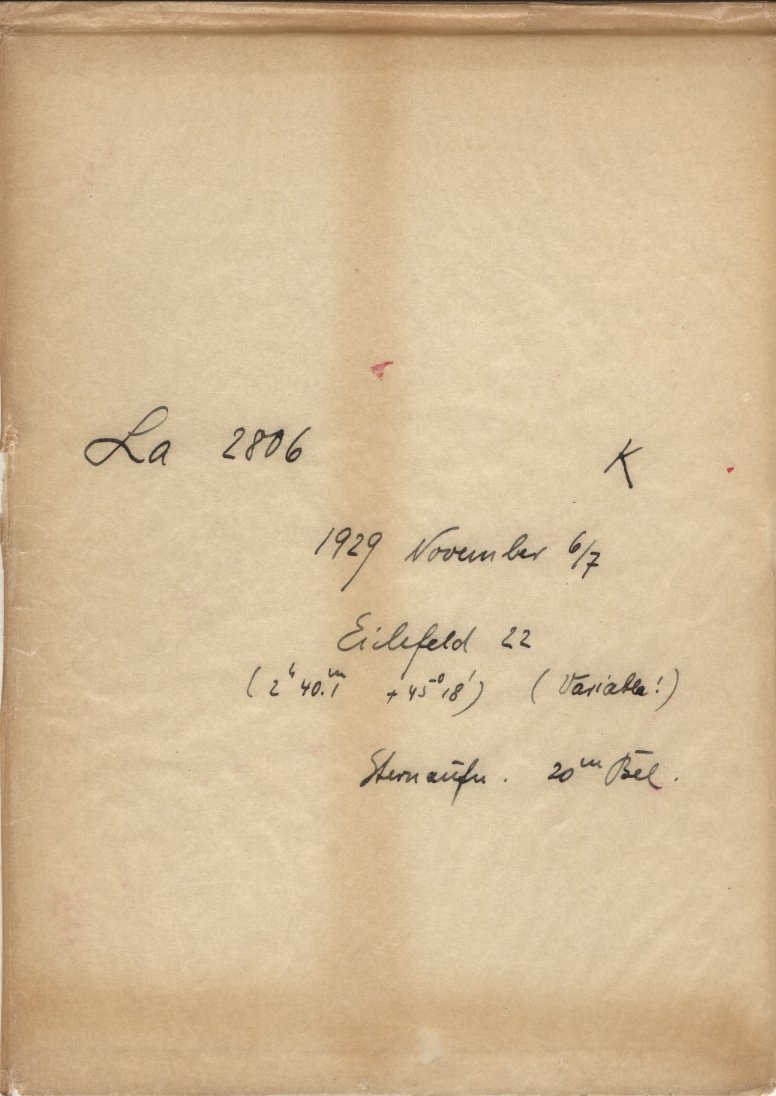 La 2806 K
1929 November 6/7
Eichfeld 22
(2ʰ 40.ᵐ1 +45° 18') (Variable!)
Sternaufn. 20ᵐ Bel.